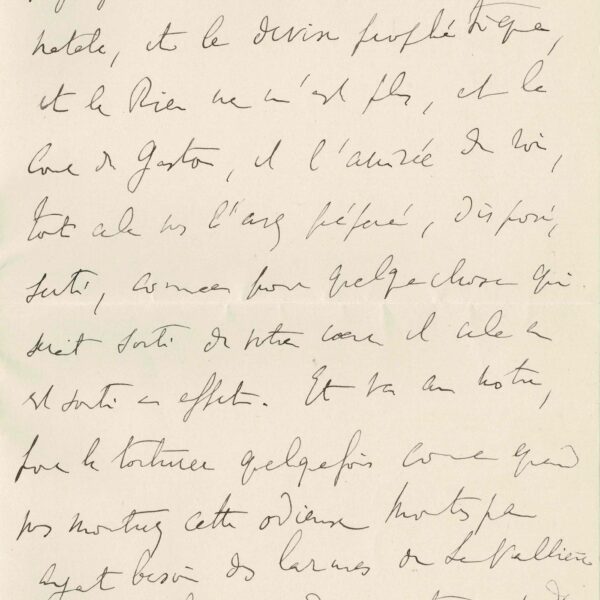 natale, et la devise prophétique,
et le Rien ne m'est plus, et la
Cour de Gaston, et l'arrivée du roi,
tout cela vous l'avez préparé, disposé,
serti, comme pour quelque chose qui
serait sorti de votre cœur et cela en
est sorti en effet. Et va au nôtre,
pour le torturer quelquefois comme quand
vous montrez cette odieuse Montespan
ayant besoin des larmes de La Vallière